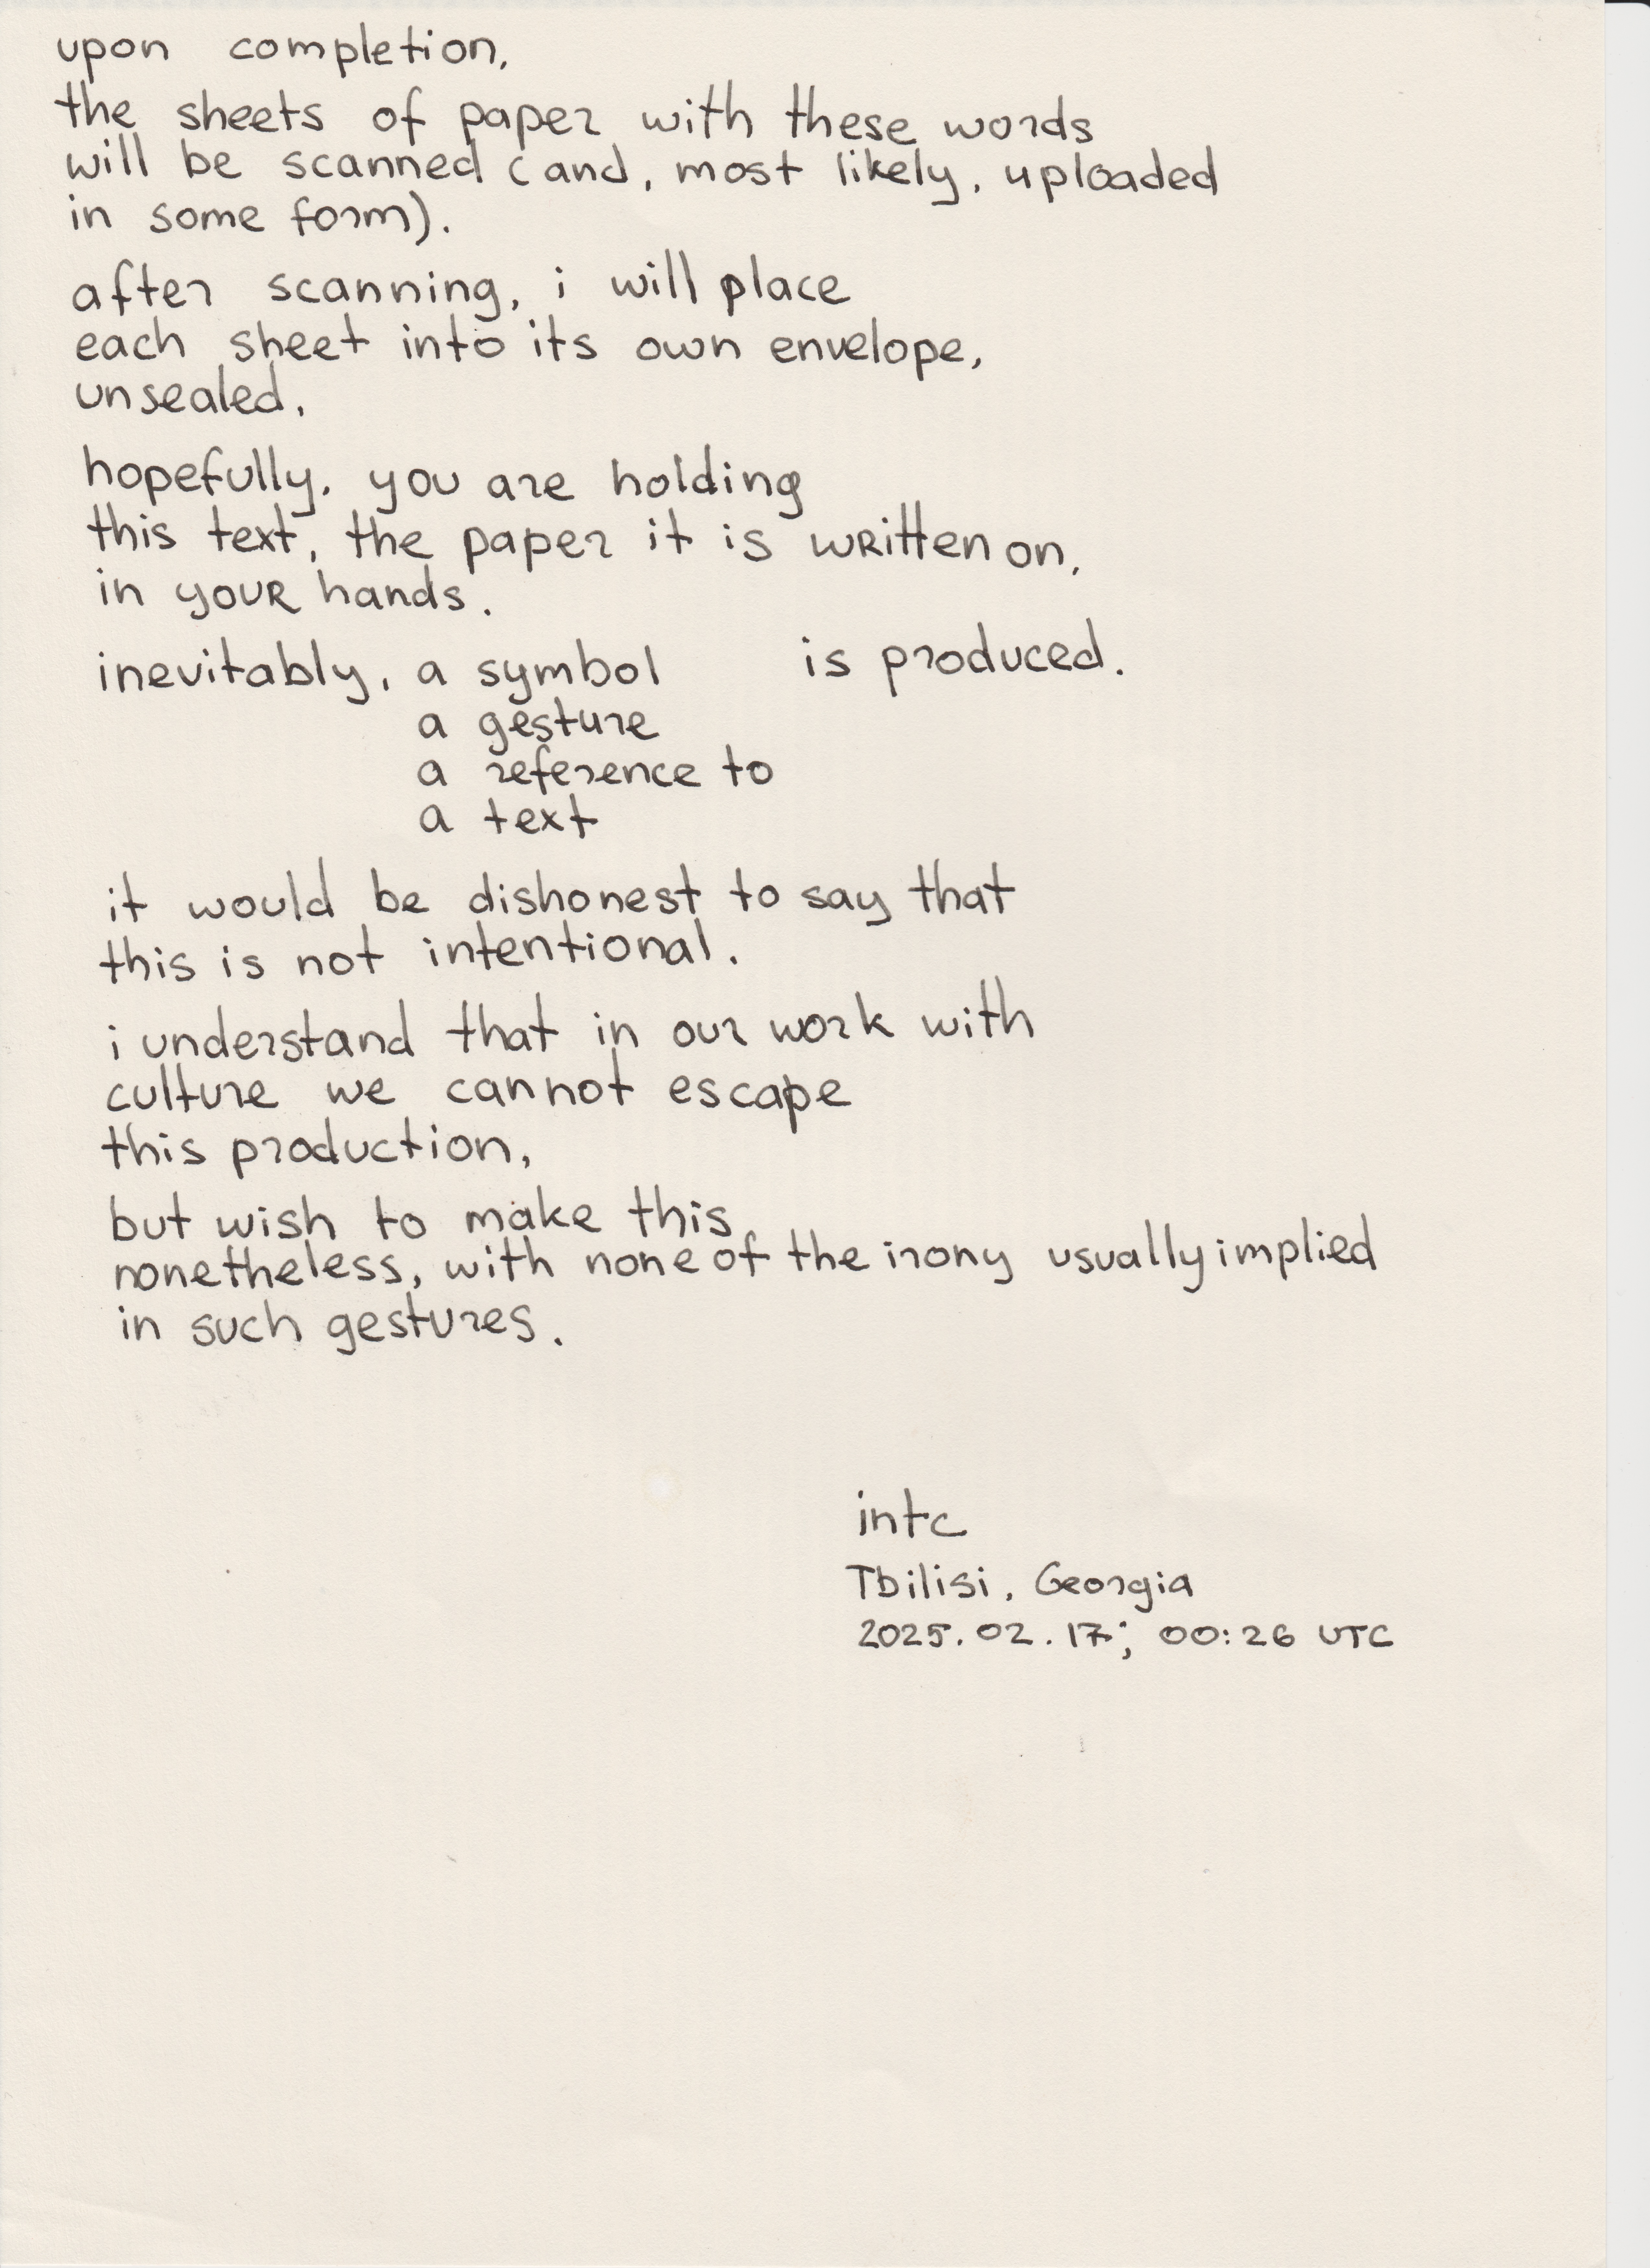 upon completion,
the sheets of paper with these words
will be scanned (and, most likely, uploaded
in some form).
after scanning, i will place
each sheet into its own envelope,
unsealed.
hopefully, you are holding
this text, the paper it is written on,
in your hands.
inevitably, a symbol is produced.
a gesture
a reference to
a text
it would be dishonest to say that
this is not intentional.
i understand that in our work with
culture we cannot escape
this production,
but wish to make this,
nonetheless, with none of the irony usually implied
in such gestures.
intc
Tbilisi, Georgia
2025.02.17; 00:26 UTC